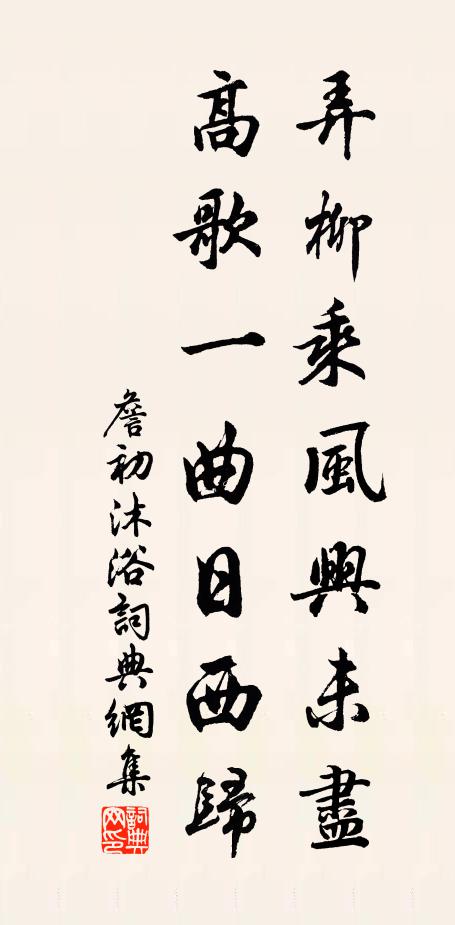 弄柳乘風興未盡
高歌一曲日西歸
詹初沐浴詞典網集
詞典網印